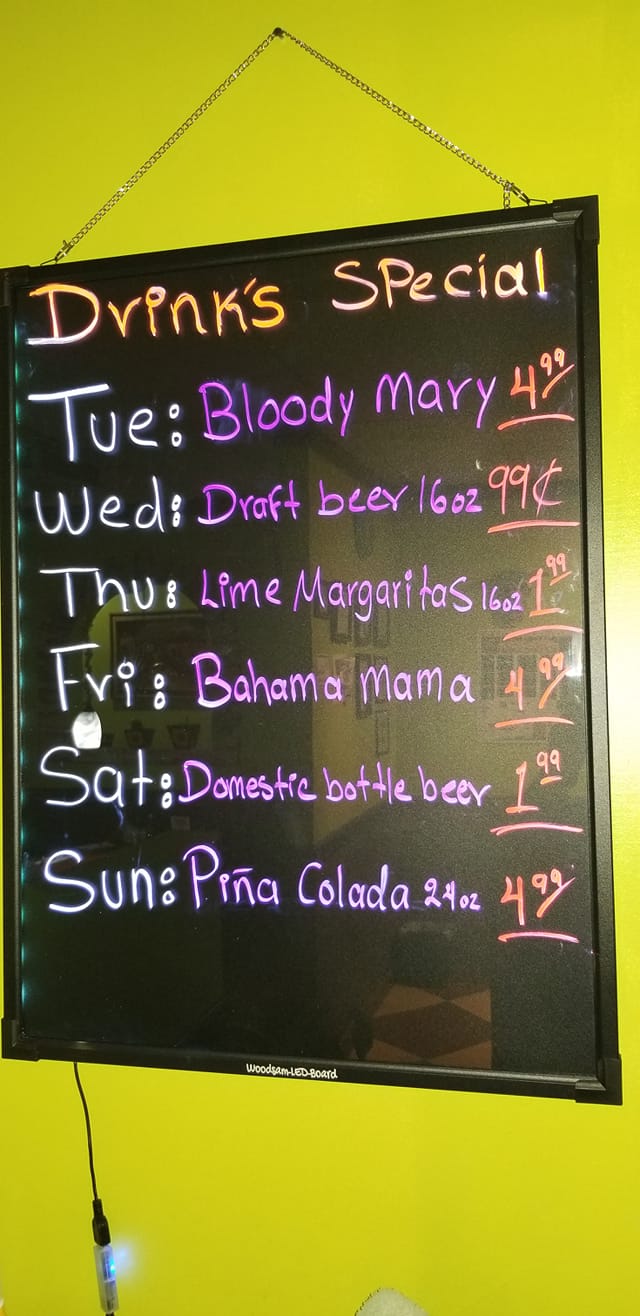 Drink's Special
Tue: Bloody Mary 4.99
Wed: Draft beer 16oz 99¢
Thu: Lime Margaritas 16oz 1.99
Fri: Bahama Mama 4.99
Sat: Domestic bottle beer 1.99
Sun: Piña Colada 24oz 4.99
Woodsam-LED-Board